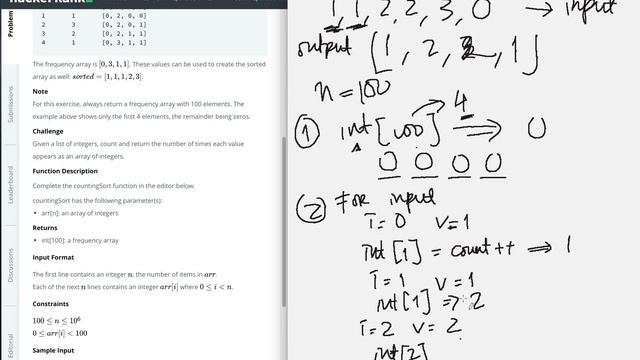 HackerRank
Problem
Submissions
Leaderboard
Discussions
Editorial
1 1 [0, 2, 0, 0]
2 3 [0, 2, 0, 1]
3 2 [0, 2, 1, 1]
4 1 [0, 3, 1, 1]
The frequency array is [0, 3, 1, 1]. These values can be used to create the sorted
array as well: sorted = [1, 1, 1, 2, 3].
Note
For this exercise, always return a frequency array with 100 elements. The
example above shows only the first 4 elements, the remainder being zeros.
Challenge
Given a list of integers, count and return the number of times each value
appears as an array of integers.
Function Description
Complete the countingSort function in the editor below.
countingSort has the following parameter(s):
• arr[n]: an array of integers
Returns
• int[100]: a frequency array
Input Format
The first line contains an integer n, the number of items in arr.
Each of the next n lines contains an integer arr[i] where 0 ≤ i < n.
Constraints
100 ≤ n ≤ 10⁶
0 ≤ arr[i] < 100
Sample Input
1, 1, 2, 2, 3, 0 → input
output [1, 2, 2, 1]
n = 100
① int[100] 4 ⇒ 0
0 0 0 0
② For input
i=0 v=1
int[1] = count++ ⇒ 1
i=1 v=1
int[1] => 2
i=2 v=2
int[2]